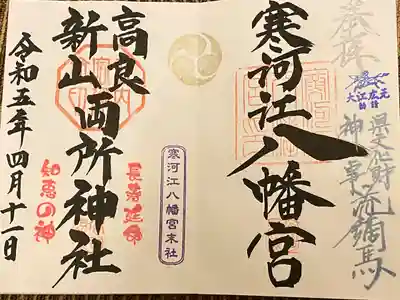 奉拝
大江広元
勧請
県文化財
神事流鏑馬
寒河江八幡宮
寒河江八幡宮末社
高良
新山両所神社
長寿延命
知恵の神
令和五年四月十一日